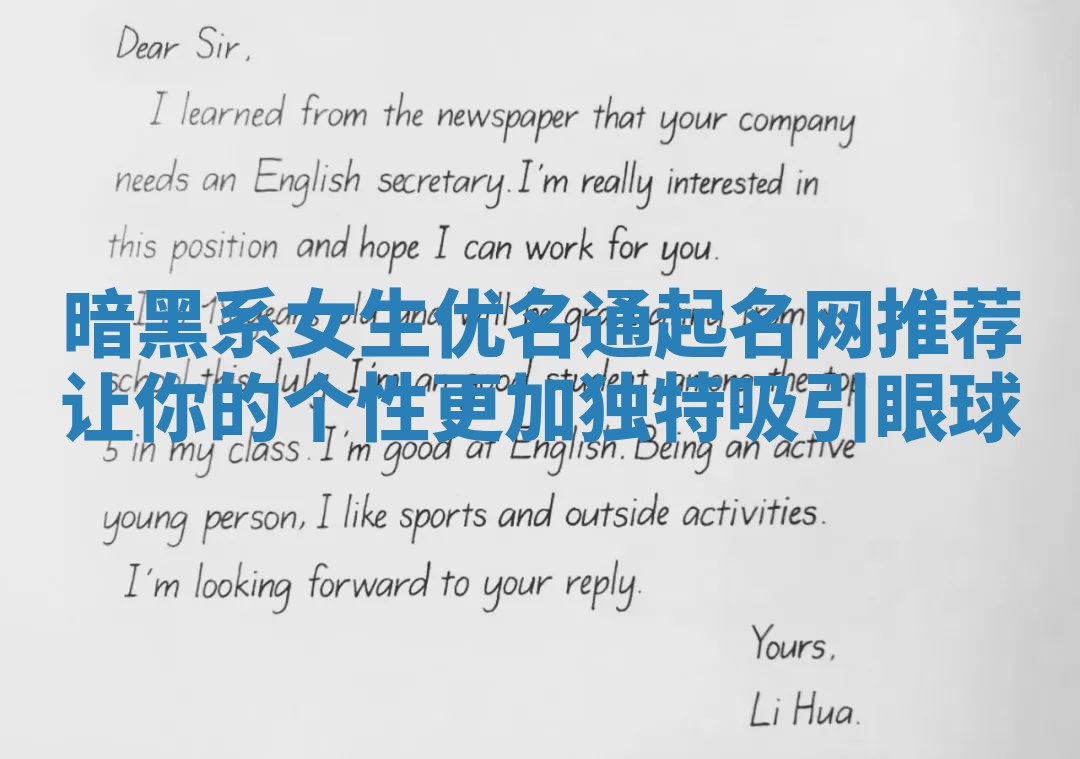 Dear Sir,
I learned from the newspaper that your company
needs an English secretary. I'm really interested in
this position and hope I can work for you.
暗黑系女生优名通起名网推荐
years old and will be graduating from
school this July. I'm a good student, among the top
让你的个性更加独特吸引眼球
5 in my class. I'm good at English. Being an active
young person, I like sports and outside activities.
I'm looking forward to your reply.
Yours,
Li Hua.